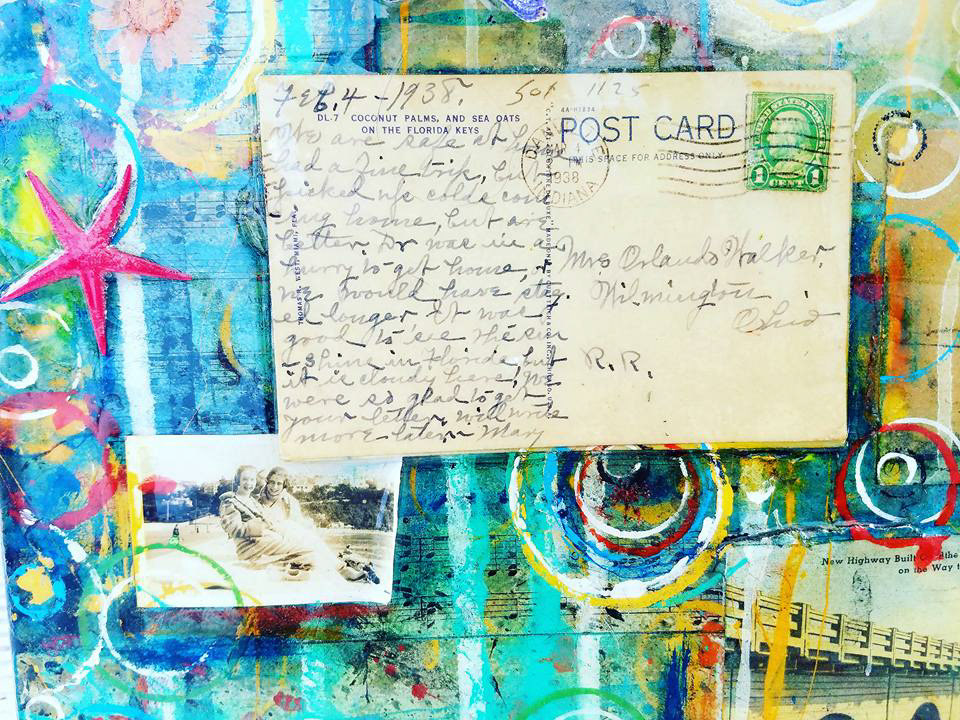 Feb. 4 - 1938.
DL-7 COCONUT PALMS, AND SEA OATS
ON THE FLORIDA KEYS
We are safe at home
had a fine trip, but
picked up colds com
ing home, but are
better Dr was in a
hurry to get home, or
we would have stay
ed longer it was
good to see the sun
shine in Florida, but
it is cloudy here, we
were so glad to get
your letter, will write
more later. Mary
THOMAS R. WEST, MIAMI, FLA.
4A-H1834
POST CARD
THIS SPACE FOR ADDRESS ONLY
1938
INDIANA
UNITED STATES POSTAGE
1 CENT 1
Mrs Orlando Walker.
Wilmington
Ohio
R.R.
New Highway Built the
on the Way t